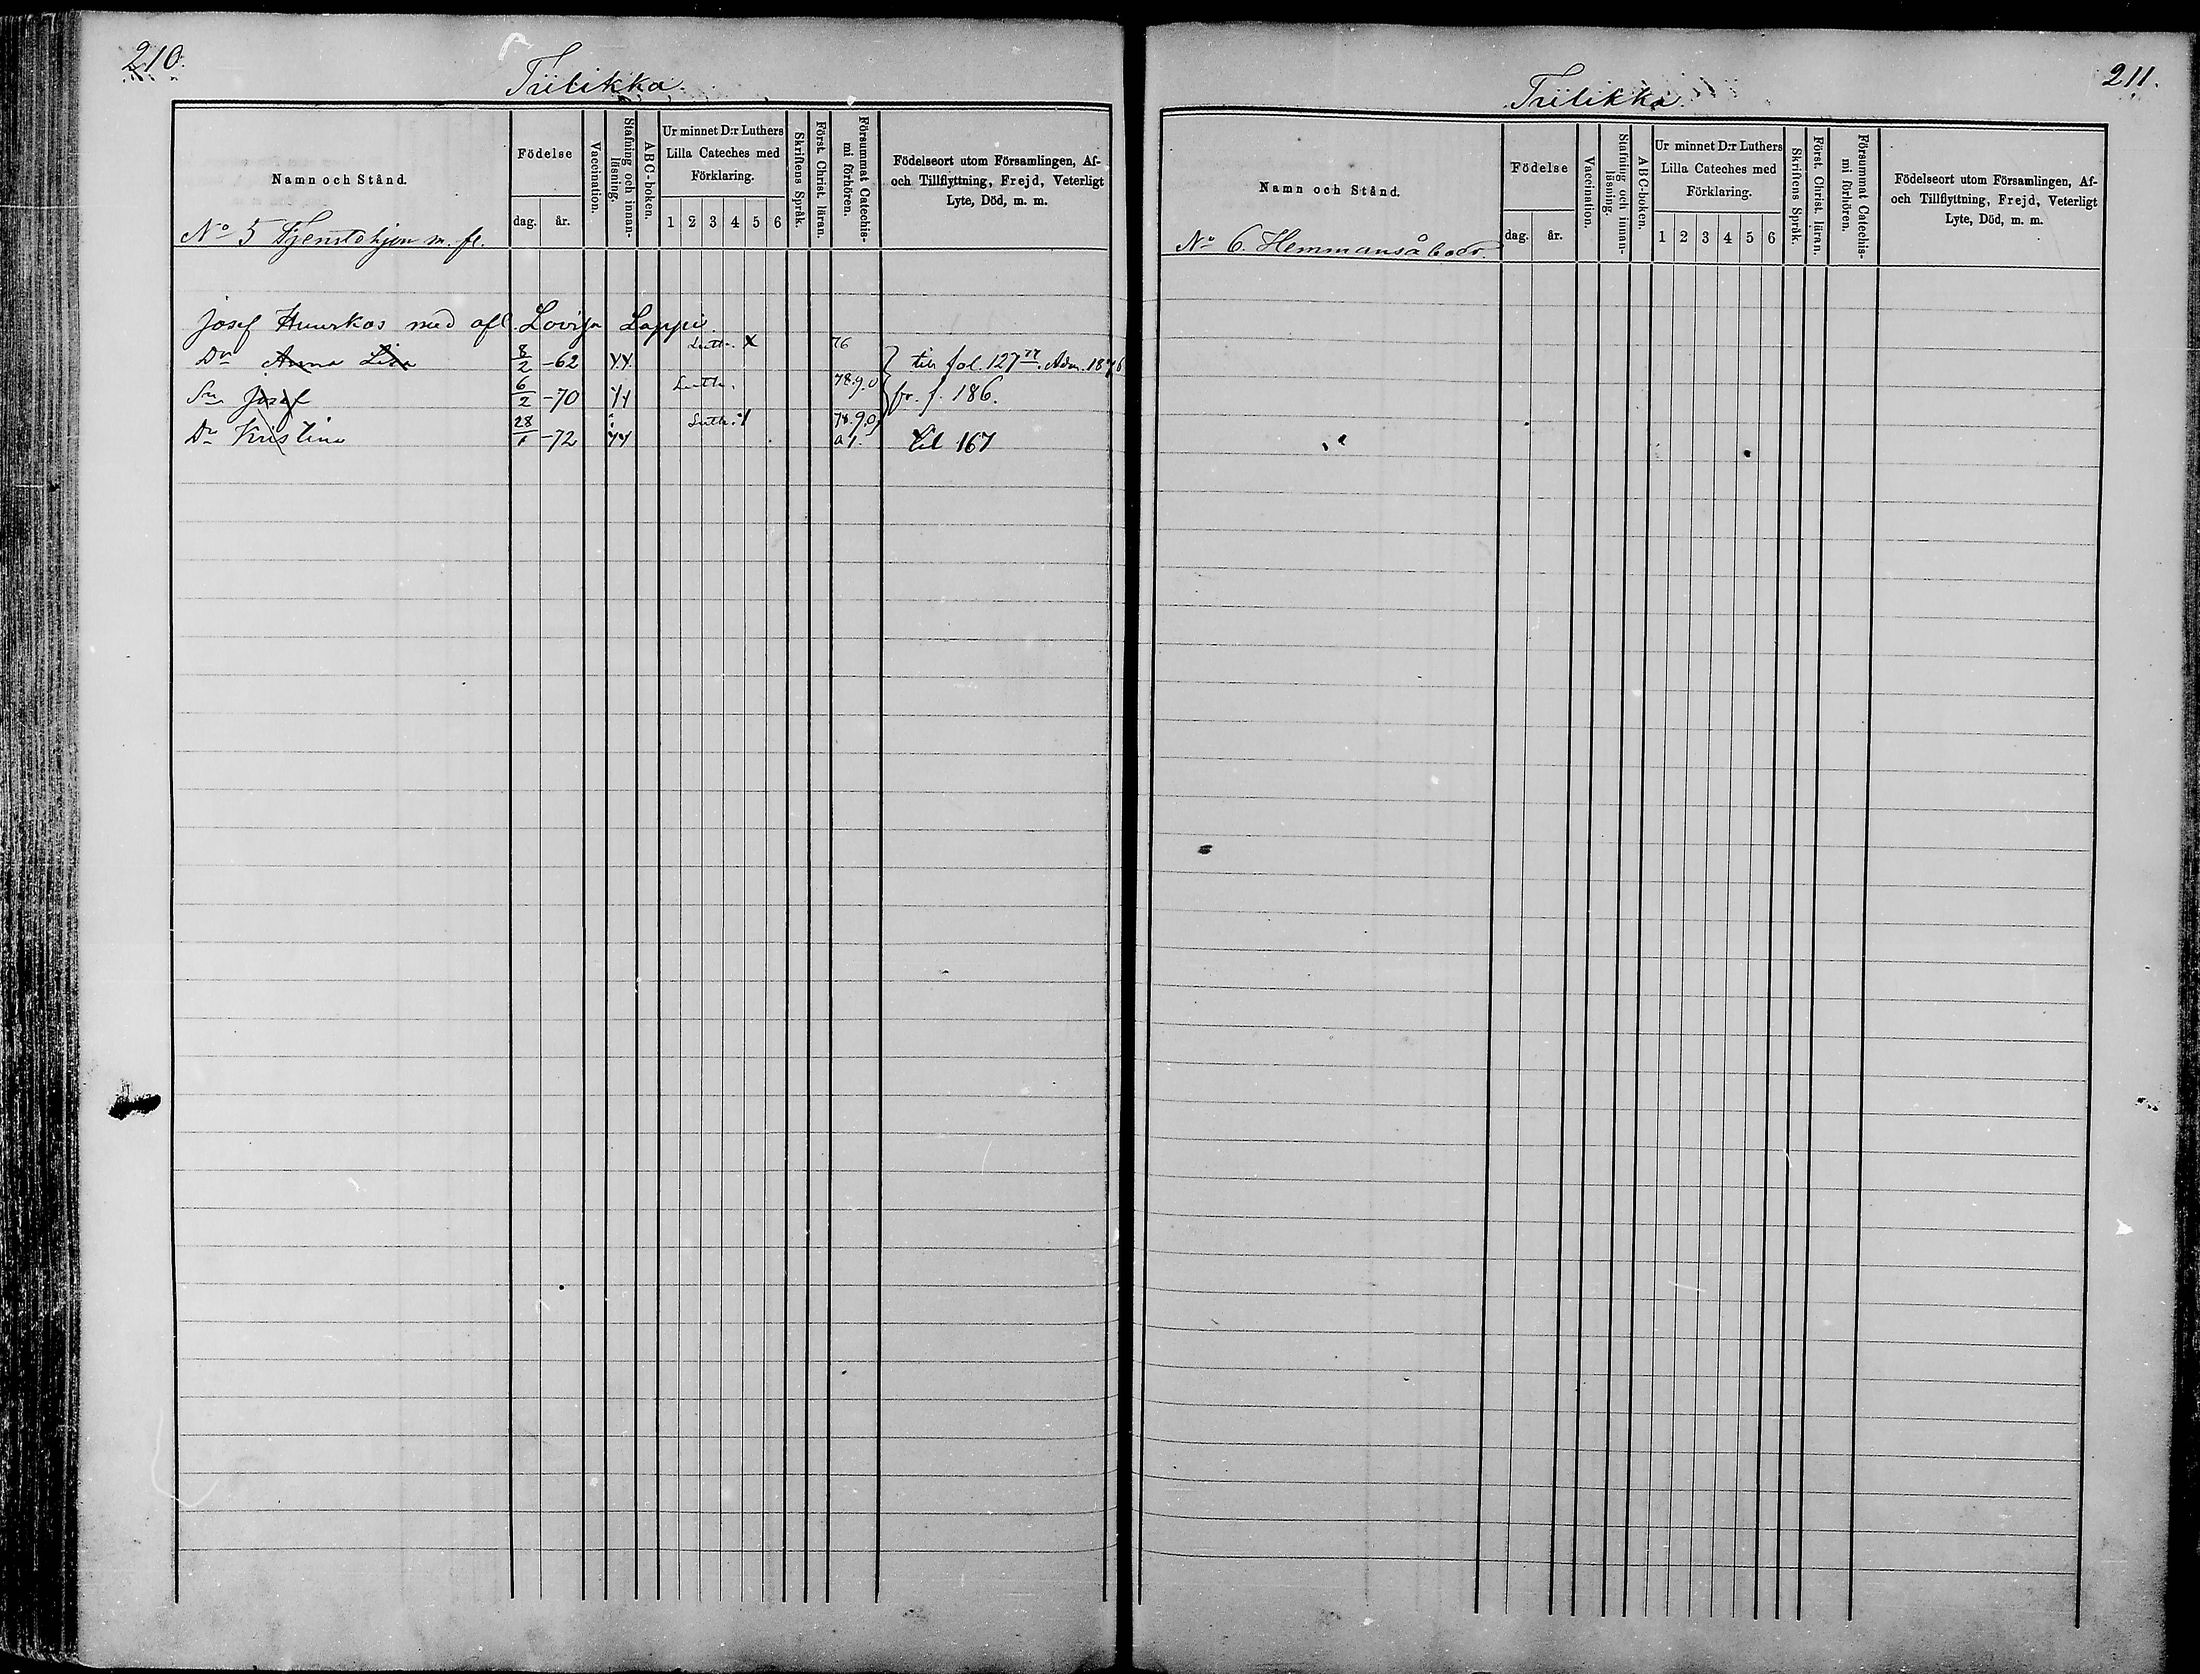 210.
Tiilikka.
Namn och Stånd.
Födelse
dag.
år.
Vaccination.
Stafning och innan-
läsning.
ABC-boken.
Ur minnet D:r Luthers
Lilla Cateches med
Förklaring.
1 2 3 4 5 6
Skriftens Språk.
Först. Christ. läran.
Försummat Catechis-
mi förhören.
Födelseort utom Församlingen, Af-
och Tillflyttning, Frejd, Veterligt
Lyte, Död, m. m.
No 5 Tjenstehjon m. fl.
Josef Huurkos med afl. Lovisa Lappi.
Dr Anna Lisa 8/2 -62 Y.Y. Luth. X 76 till fol. 127 Adm. 1876
Sn Josef 6/2 -70 YY Luth. 78.9.0 fr. f. 186.
Dr Kristina 28/1 -72 YY Luth. 78.9.0. a 1. till 167
211.
Tiilikka.
Namn och Stånd.
Födelse
dag.
år.
Vaccination.
Stafning och innan-
läsning.
ABC-boken.
Ur minnet D:r Luthers
Lilla Cateches med
Förklaring.
1 2 3 4 5 6
Skriftens Språk.
Först. Christ. läran.
Försummat Catechis-
mi förhören.
Födelseort utom Församlingen, Af-
och Tillflyttning, Frejd, Veterligt
Lyte, Död, m. m.
No 6. Hemmansåboer.